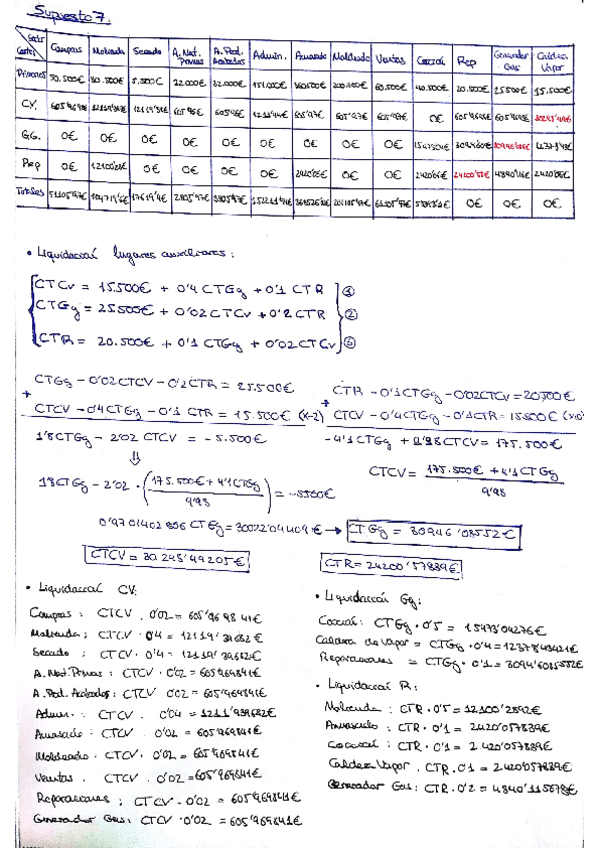 Supuesto 7.
Compras Molienda Secado A. Nat. Primas A. Prod. Acabados Admin. Amasado Moldeado Ventas Cocción Rep Generador Gas Caldera Vapor
Primarios 50.500€ 80.500€ 5.500€ 22.000€ 32.000€ 151.000€ 360.500€ 200.500€ 60.500€ 40.500€ 20.500€ 25.500€ 15.500€
CV.
G.G. 0€ 0€ 0€ 0€ 0€ 0€ 0€ 0€ 0€
Rep 0€ 0€ 0€ 0€ 0€ 0€ 0€
Totales 0€ 0€ 0€
• Liquidación lugares auxiliares:
CTCv = 15.500€ + 0'4 CTGg + 0'1 CTR ①
CTGg = 25.500€ + 0'02 CTCv + 0'2 CTR ②
CTR = 20.500€ + 0'1 CTGg + 0'02 CTCv
CTGg - 0'02CTCV - 0'2CTR = 25.500€
+ CTCV - 0'4CTGg - 0'1 CTR = 15.500€ (x-2)
1'8CTGg - 2'02 CTCV = -5.500€
CTR - 0'1CTGg - 0'02CTCV = 20.500€
+ CTCV - 0'4CTGg - 0'1CTR = 15.500€ (x10)
-4'1CTGg + 9'98CTCV = 175.500€
CTCV = 175.500€ + 4'1CTGg / 9'98
1'8CTGg - 2'02 · (175.500€ + 4'1CTGg / 9'98) = -5500€
0'9701402806 CTGg = 30022'04409€ → CTGg = 30946'08552€
CTCV = 30.248'49205€
CTR = 24200'57839€
• Liquidación CV:
Compras: CTCV . 0'02 = 605'969841€
Molienda: CTCV · 0'4 = 12119'39682€
Secado: CTCV · 0'4 = 12119'39682€
A. Mat. Primas: CTCV · 0'02 = 605'969841€
A. Prod. Acabados: CTCV 0'02 = 605'969841€
Admin.: CTCV . 0'04 = 1211'939682€
Amasado: CTCV . 0'02 = 605'969841€
Moldeado: CTCV · 0'02 = 605'969841€
Ventas . CTCV . 0'02 = 605'969841€
Reparaciones: CTCV · 0'02 = 605'969841€
Generador Gas: CTCV · 0'02 = 605'969841€
• Liquidación Gg:
Cocción: CTGg · 0'5 = 15473'04276€
Caldera de Vapor = CTGg · 0'4 = 12378'43421€
Reparaciones = CTGg · 0'1 = 3094'608552€
• Liquidación R:
Molienda: CTR · 0'5 = 12.100'2892€
Amasado: CTR · 0'1 = 2420'057839€
Cocción: CTR · 0'1 = 2420'057839€
Caldera Vapor . CTR . 0'1 = 2420'057839€
Generador Gas: CTR . 0'2 = 4840'115678€